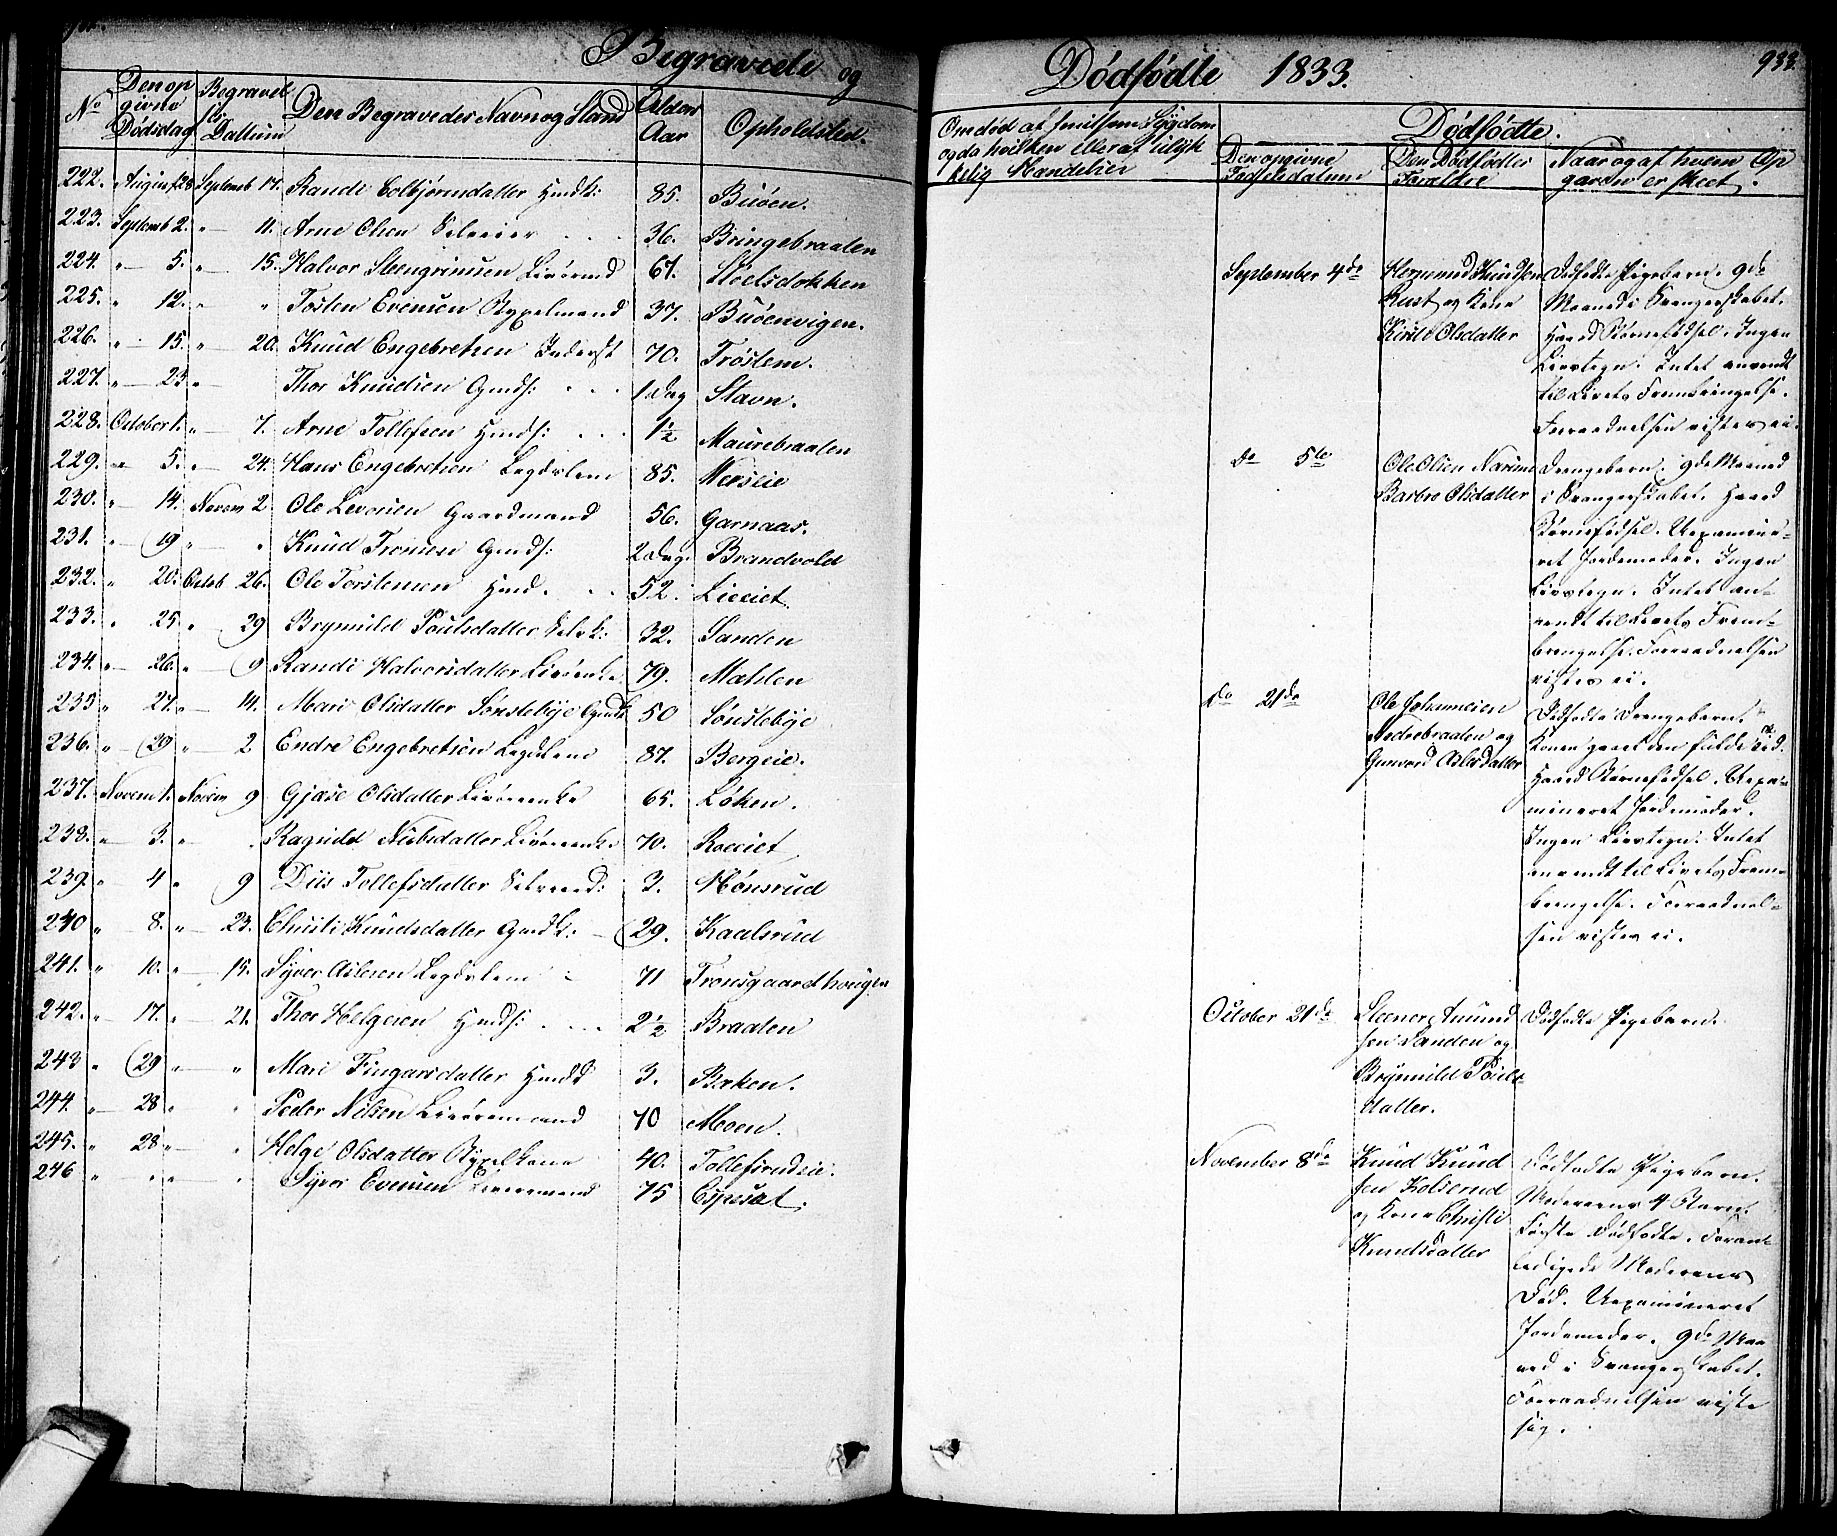 Begravede og
Dödfödte 1833.
933.
No
Den op
givne
Dödsdag
Begravel
ses
Dattum
Den Begravedes Navn og Stand
Alder
Aar
Opholdsted.
222. August 28 Septemb 14. Randi Colbjörnsdatter Huusk: 85. Buöen.
223. Septemb 2. " 11. Arne Olsen Selveier 36. Bringebraaten
224. " 5. " 15. Halvor Steengrimsen Livöremd 67. Stöelsdokken
225. " 12. " " Tosten Evensen Rypelmand 37. Buöenvigen.
226. " 15. " 20. Knud Engebretsen Inderst 70. Tröstem.
227. " 23 " Thor Knudsen Gmds: 1 Dag Stavn.
228. October 1. " 7. Arne Tollefsen Hmds: 1½ Maurebraaten
229. " 5. " 24. Hans Engebretsen Legdslem 85. Merseie
230. " 14. Novem 2. Ole Levorsen Gaardmand 56. Garnaas.
231. " 19 " " Knud Tronsen Gmds: 2 Dag. Brandvold
232. " 20. Octob 26. Ole Torstensen Hmd. 52. Lieeiet
233. " 25 " 29 Brynild Poulsdatter Selvk: 32. Sanden
234. " 26. " 9 Randi Halvorsdatter Livörenke. 79. Mæhlen
235 " 27. " 14. Mari Olsdatter Sönstebye Gmdk 50 Sönstebye
236. " 29 " 2 Endre Engebretsen Legdslem 87. Bergeie.
237. Novem 1. Novem 9 Gjase Olsdatter Livöreenke 65. Löken.
238. " 3. " . Ragnild Nielsdatter Livöreenke 70. Roeeiet
239. " 4 " 9 Diis Tollefsdatter Selveierd: 3. Mönsrud
240 " 8. " 23. Christi Knudsdatter Gmdk: 29. Kaalsrud
241. " 10. " 15. Syver Aslesen Legdslem 71 Tronsgaardhougen
242. " 17. " 21. Thor Helgesen Hmds: 2½ Braaten
243 " 29 " " Mari Fingarsdatter Hmdd 3. Birken.
244. " 28 " " Peder Nilsen Livöremand 70 Moen.
245. " 28 " " Helge Olsdatter Rypelkone 40. Tollefsrudeie.
246 " " " " Syver Evensen Livöremand 75 Espesat.
Om död af smitsom Sygdom
og da hvilken eller af ulyk
kelig Hændelser
Dödfödte.
Den opgivne
Födselsdatum
Den Dödfödtes
Forældre
Naar og af hvem Op
gaven er skeet.
September 4de
Hermund Knudsen
Rust og Kone
Kirsti Olsdatter
Dödfödte Pigebarn. 9de
Maaned i Svangerskabet.
Haard Börnefödsel. Ingen
Livstegn. Intet anvendt
til Livets Frembringelse.
Forraadnelsen vistes ei.
Do 5te
Ole Olsen
Barbro Olsdatter
Drengebarn. 9de Maaned
i Svangerskabet. Haard
Börnefödsel. Uexamine-
ret Jordemoder. Ingen
Livstegn. Intet an-
vendt til Livets Frem-
bringelse. Forraadnelsen
vistes ei.
Do 21de
Ole Johannesen
Nedrebraaten og
Gunvord Aslesdatter
Dödfödte Drengebarn.
Konen gaaet den fulde Tid.
Haard Börnefödsel. Uexa-
mineret Jordemoder.
Ingen Livstegn. Intet
anvendt til Livets Frem-
bringelse. Forraadnel-
sen vistes ei.
October 21de
Steener Amund
sen Sanden og
Brynild Pouls
datter.
Dödfödte Pigebarn.
November 8de
Knud Knud
sen Kolsrud
og Kone Christi
Knudsdatter
Dödfödte Pigebarn.
Moderens 4 Barn.
Förste Dödfödte. Foran-
ledigede Moderens
Död. Uexamineret
Jordemoder. 9de Maa
ned i Svangerskabet.
Forraadnelsen viste
sig.